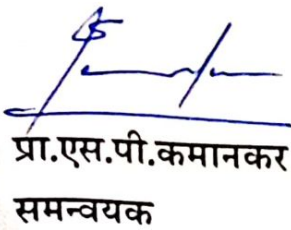 प्रा.एस.पी.कमानकर
समन्वयक